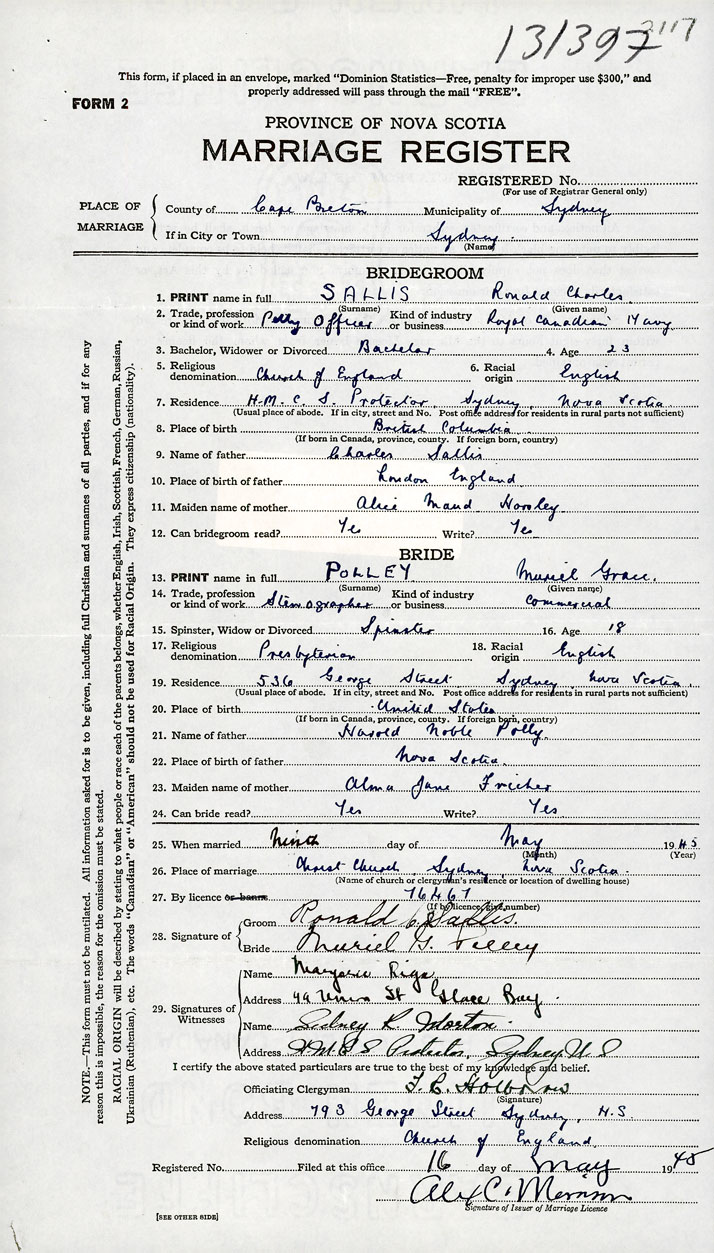 131397 2117
This form, if placed in an envelope, marked "Dominion Statistics—Free, penalty for improper use $300," and
properly addressed will pass through the mail "FREE".
FORM 2
PROVINCE OF NOVA SCOTIA
MARRIAGE REGISTER
REGISTERED No.
(For use of Registrar General only)
PLACE OF MARRIAGE
County of Cape Breton Municipality of Sydney
If in City or Town Sydney
(Name)
BRIDEGROOM
1. PRINT name in full SALLIS Ronald Charles
(Surname) (Given name)
2. Trade, profession or kind of work Petty Officer Kind of industry or business Royal Canadian Navy
3. Bachelor, Widower or Divorced Bachelor 4. Age 23
5. Religious denomination Church of England 6. Racial origin English
7. Residence H.M.C.S. Protector, Sydney, Nova Scotia
(Usual place of abode. If in city, street and No. Post office address for residents in rural parts not sufficient)
8. Place of birth British Columbia
(If born in Canada, province, county. If foreign born, country)
9. Name of father Charles Sallis
10. Place of birth of father London England
11. Maiden name of mother Alice Maud Horsley
12. Can bridegroom read? Yes Write? Yes
BRIDE
13. PRINT name in full POLLEY Muriel Grace.
(Surname) (Given name)
14. Trade, profession or kind of work Stenographer Kind of industry or business Commercial
15. Spinster, Widow or Divorced Spinster 16. Age 18
17. Religious denomination Presbyterian 18. Racial origin English
19. Residence 536 George Street Sydney, Nova Scotia.
(Usual place of abode. If in city, street and No. Post office address for residents in rural parts not sufficient)
20. Place of birth United States
(If born in Canada, province, county. If foreign born, country)
21. Name of father Harold Noble Polly
22. Place of birth of father Nova Scotia.
23. Maiden name of mother Alma Jane
24. Can bride read? Yes Write? Yes
25. When married Ninth day of May 1945
(Month) (Year)
26. Place of marriage Christ Church, Sydney Nova Scotia.
(Name of church or clergyman's residence or location of dwelling house)
27. By licence or banns 76467
(If by licence, give number)
28. Signature of
Groom Ronald C. Sallis.
Bride Muriel G. Polley
29. Signatures of Witnesses
Name Marjorie
Address 49 Union St Glace Bay.
Name Sidney R. Morton
Address HMCS Protector, Sydney N S
I certify the above stated particulars are true to the best of my knowledge and belief.
Officiating Clergyman
(Signature)
Address 793 George Street Sydney, N.S.
Religious denomination Church of England
Registered No. Filed at this office 16 day of May 1945
Alex C. Morrison
Signature of Issuer of Marriage Licence
[SEE OTHER SIDE]
NOTE.—This form must not be mutilated. All information asked for is to be given, including full Christian and surnames of all parties, and if for any
reason this is impossible, the reason for the omission must be stated.
RACIAL ORIGIN will be described by stating to what people or race each of the parents belongs, whether English, Irish, Scottish, French, German, Russian,
Ukrainian (Ruthenian), etc. The words "Canadian" or "American" should not be used for Racial Origin. They express citizenship (nationality).